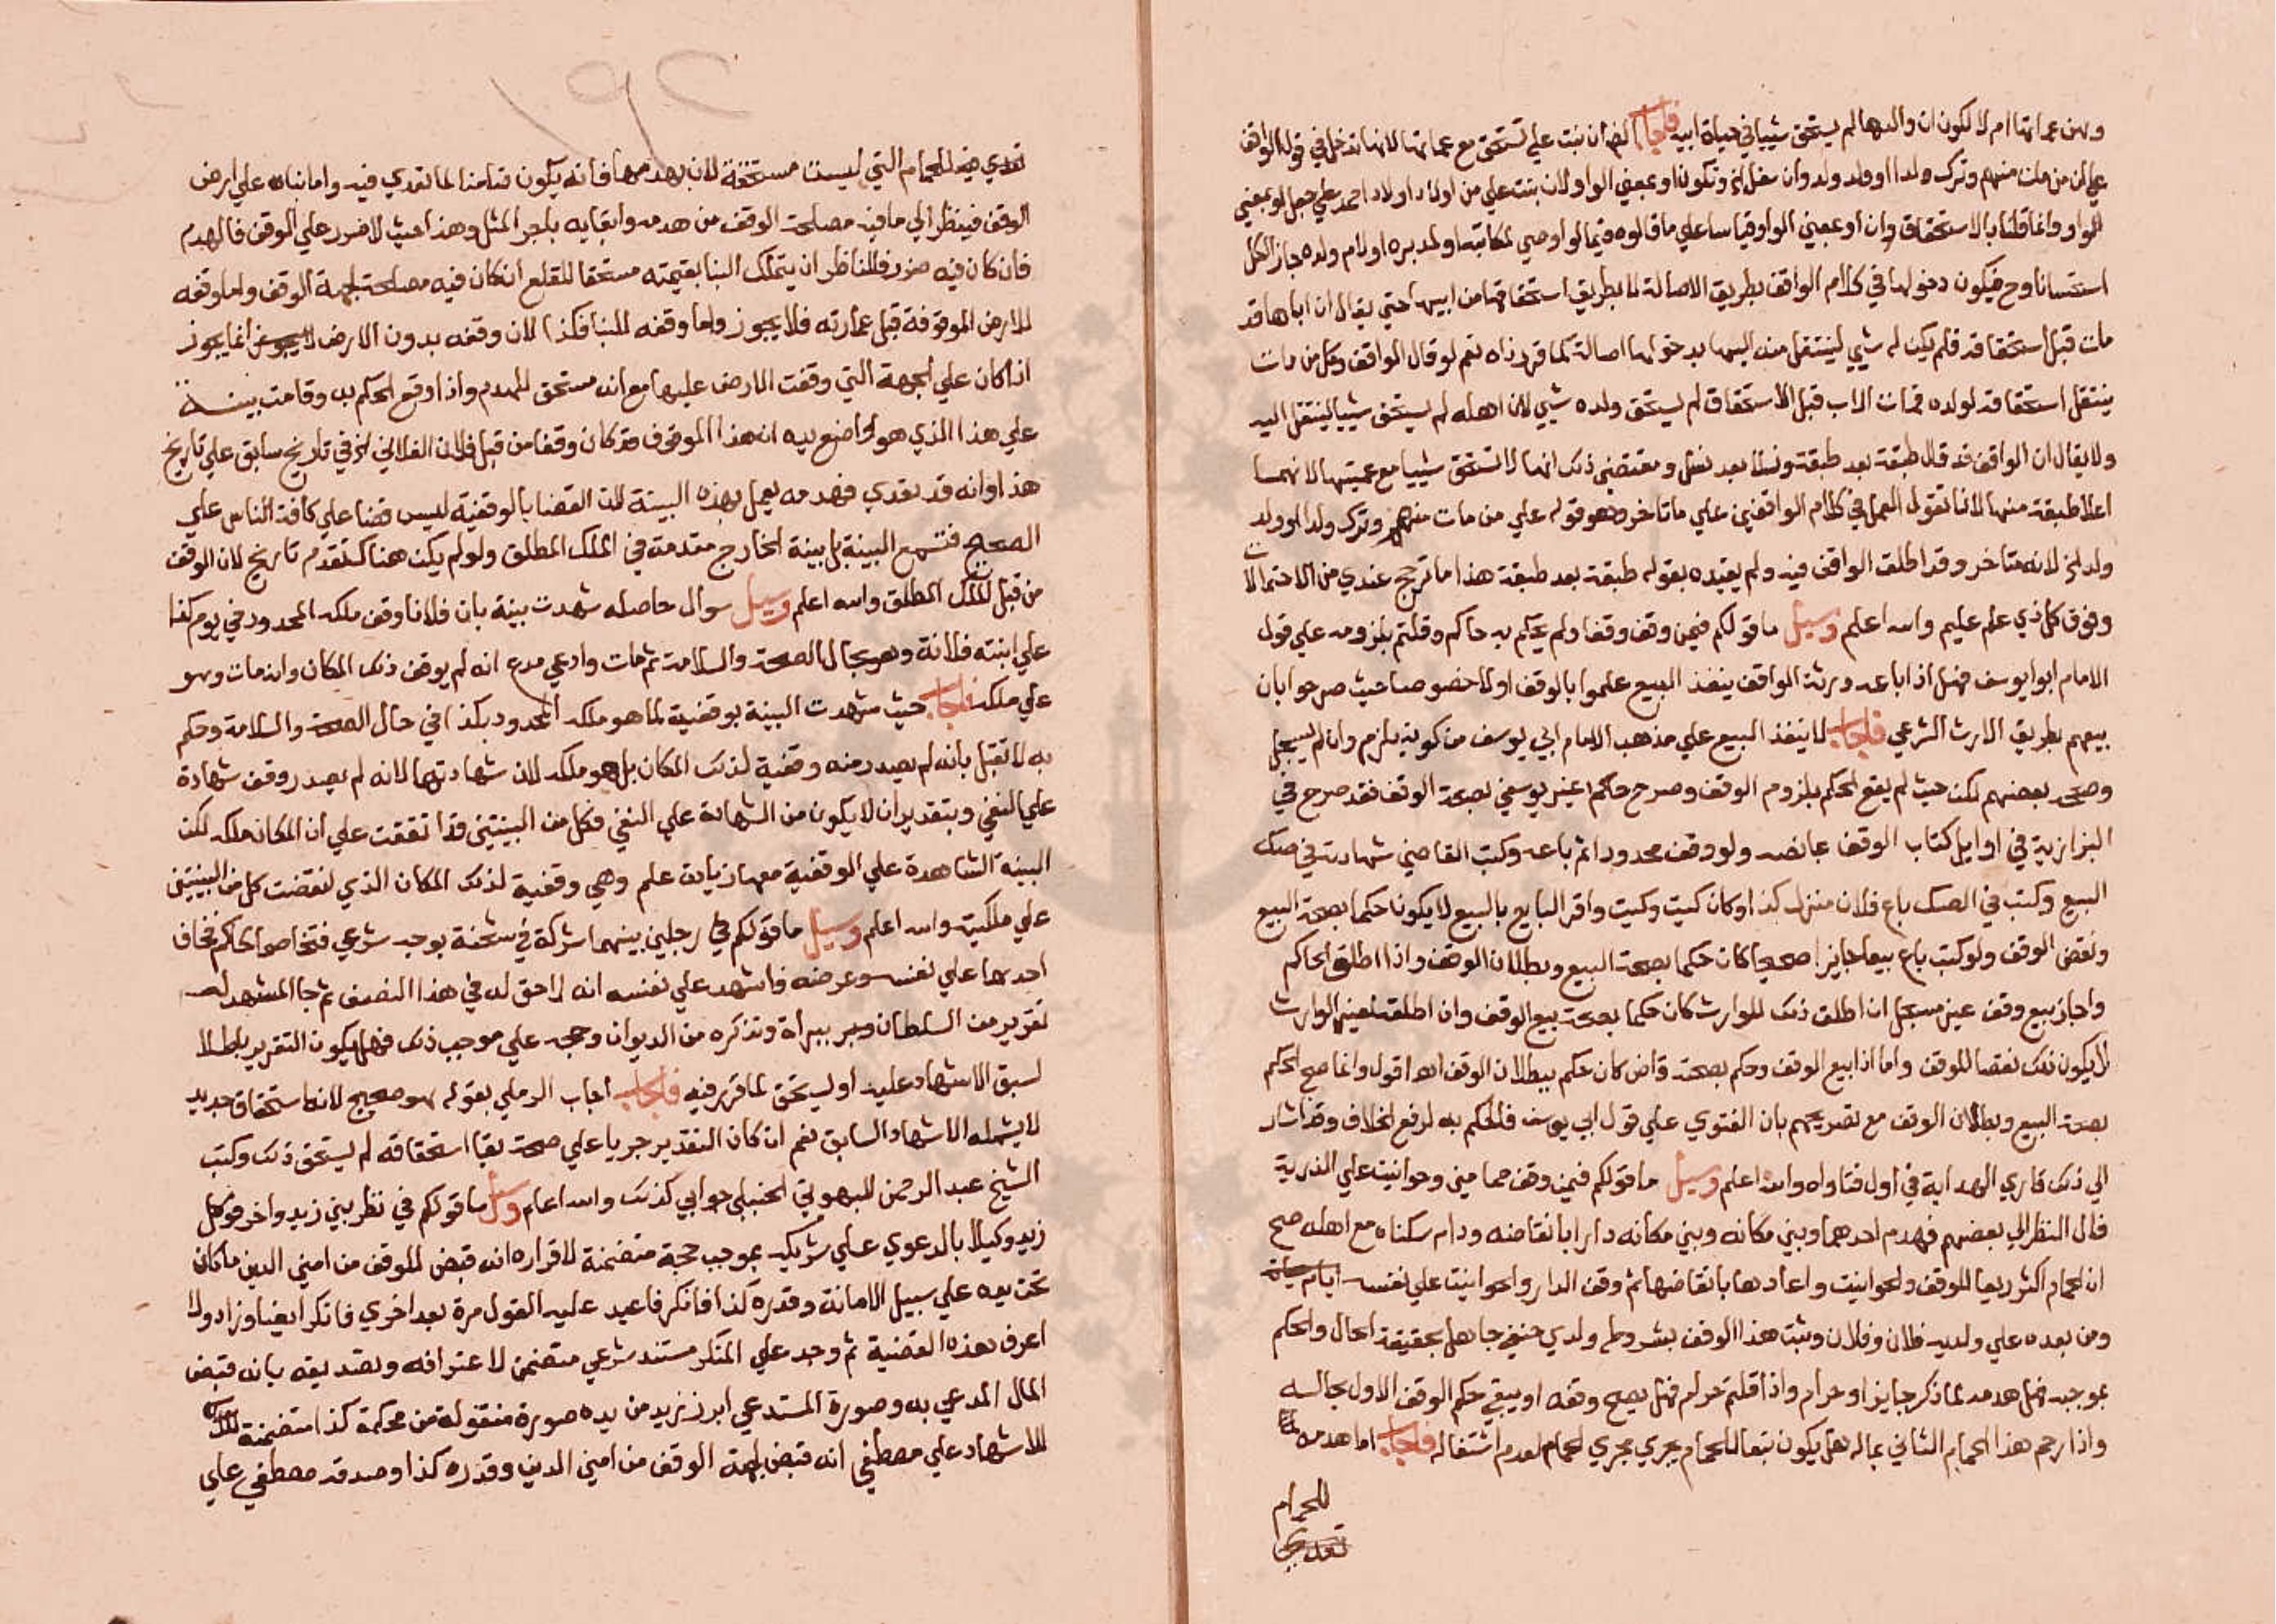 وهن عماتها ام لا لكون ان والدها لم يستحق شييا في حياة ابيه فاجاب نعم ان بنت علي تستحق مع عماتها لانها تدخل في قول الواقف
علي ان من مات منهم وترك ولدا او ولد ولد وان سفل الخ وتكون او بمعني الواو لان بنت علي من اولاد اولاد احمد علي جعل او بمعني
الواو وانما قلنا بالاستحقاق وان او بمعني الواو قياسا علي ما قالوه فيما لو اوصي لمكاتبه او لمدبره او لام ولده جاز الكل
استحسانا وح فيكون دخولها في كلام الواقف بطريق الاصالة لا بطريق استحقاقها من ابيها حتي يقال ان اباها قد
مات قبل استحقاقه فلم يكن له شي لينتقل منه اليها بدخولها اصالة كما قررناه نعم لو قال الواقف وكل من مات
ينتقل استحقاقه لولده فمات الاب قبل الاستحقاق لم يستحق ولده شي لان اصله لم يستحق شييا لينتقل اليه
ولا يقال ان الواقف قد قال طبقة بعد طبقة ونسلا بعد نسل ومقتضي ذلك انها لا تستحق شييا مع عمتيها لانهما
اعلا طبقة منها لانا نقول العمل في كلام الواقفين علي ما تاخر وهو قوله علي من مات منهم وترك ولدا او ولد
ولد الخ لانه متاخر وقد اطلق الواقف فيه ولم يقيده بقوله طبقة بعد طبقة هذا ما ترجح عندي من الاحتمالات
وفوق كل ذي علم عليم والله اعلم وسيل ما قولكم فيمن وقف وقفا ولم يحكم به حاكم وقلتم بلزومه علي قول
الامام ابو يوسف فهل اذا باعه ورثة الواقف ينفذ البيع علموا بالوقف اولا خصوصا حيث صرحوا بان
بيعهم بطريق الارث الشرعي فاجاب لا ينفذ البيع علي مذهب الامام ابي يوسف من كونه يلزم وان لم يسجل
وصححه بعضهم لكن حيث لم يقع الحكم بلزوم الوقف وصرح حاكم غير يوسفي بصحة الوقف فقد صرح في
البزازية في اوايل كتاب الوقف بما نصه ولو وقف محدودا ثم باعه وكتب القاضي شهادته في صك
البيع وكتب في الصك باع فلان منزل كذا وكان كيت وكيت واقر البايع بالبيع لا يكون حكما بصحة البيع
ونقض الوقف ولو كتب باع بيعا جايزا صحيحا كان حكما بصحة البيع وبطلان الوقف واذا اطلق الحاكم
واجاز بيع وقف غير مسجل ان اطلق ذلك للوارث كان حكما بصحة بيع الوقف وان اطلقه لغير الوارث
لا يكون ذلك نقضا للوقف واما اذا بيع الوقف وحكم بصحته قاض كان حكم ببطلان الوقف اه اقول وانما صح الحكم
بصحة البيع وبطلان الوقف مع تصريحهم بان الفتوي علي قول ابي يوسف فالحكم به لرفع الخلاف وقد اشار
الي ذلك قاري الهداية في اول فتاواه والله اعلم وسيل ما قولكم فيمن وقف حمامين وحوانيت علي الذرية
فال النظر الي بعضهم فهدم احدهما وبني مكانه وبني مكانه دارا بانقاضه ودام سكناه مع اهله صح
ان الحمام اكثر ريعا للوقف والحوانيت واعادها بانقاضها ثم وقف الدار والحوانيت علي نفسه ايام حياة
ومن بعده علي ولديه فلان وفلان وثبت هذا الوقف بشروطه ولدي حنفي جاهل بحقيقة الحال والحكم
بموجبه فهل هدمه لما ذكر جايز او حرام واذا قلتم حرام فهل يصح وقفه او يبقي حكم الوقف الاول بحاله
واذا رجم هذا الحمام الثاني بماله هل يكون بتعا للحمام يجري مجري الحمام لعدم اشتغاله فاجاب اما هدمه
للحمام
تعدي
١٩٢
تعدي فيه للحمام التي ليست مستحقة لان يهدمها فانه يكون ضامنا لما تعدي فيه واما بناه علي ارض
الوقف فينظر الي ما فيه مصلحة الوقف من هدمه وابقايه باجر المثل وهذا حيث لا ضرر علي الوقف فالهدم
فان كان فيه ضرر فللناظر ان يتملك البنا بقيمته مستحقا للقلع ان كان فيه مصلحة لجهة الوقف واما وقفه
للارض الموقوفة قبل عمارته فلا يجوز واما وقفه للبنا فكذا لان وقفه بدون الارض انما يجوز
اذا كان علي الجهة التي وقفت الارض عليها مع انه مستحق للهدم واذا وقع الحكم به وقامت بينة
علي هذا الذي هو واضع يده ان هذا الموقوف قد كان وقفا من قبل فلان الفلاني الخ في تاريخ سابق علي تاريخ
هذا وانه قد تعدي فهدمه يعمل بهذه البينة لان القضا بالوقفية ليس قضا علي كافة الناس علي
الصحيح فتسمع البينة بل بينة الخارج مقدمة في الملك المطلق ولو لم يكن هناك تقدم تاريخ لان الوقف
من قبل الملك المطلق والله اعلم وسيل سوال حاصله شهدت بينة بان فلانا وقف ملكه المحدود في يوم كذا
علي ابنته فلانة وهو بحال الصحة والسلامة ثم مات وادعي مدع انه لم يوقف ذلك المكان وانه مات وهو
علي ملكه فاجاب حيث شهدت البينة بوقفية لما هو ملكه المحدود بكذا في حال الصحة والسلامة وحكم
به لا تقبل بانه لم يصدر منه وقفية لذلك المكان بل هو ملكه لان شهادتهما لانه لم يصدر وقف شهادة
علي النفي وبتقدير ان لا يكون من الشهادة علي النفي فكل من البينتين قد اتفقت علي ان المكان ملكه لكن
البينة الشاهدة علي الوقفية معها زيادة علم وهي وقفية لذلك المكان الذي لنقضت كل من البينتين
علي ملكيته والله اعلم وسيل ما قولكم في رجلين بينهما شركة في شحنة بوجه شرعي فتخاصما لحاكم فخاف
احدهما علي نفسه وعرضه فاشهد علي نفسه انه لا حق له في هذا النصف ثم جا المشهد له
تقرير من السلطان وببراة وتذكره من الديوان وحجه علي موجب ذلك فهل يكون التقرير باطلا
لسبق الاشهاد عليه او يستحق لما قرر فيه فاجاب اجاب الرملي بقوله هو صحيح لانه استحقاق جديد
لا يشمله الاشهاد السابق نعم ان كان التقدير جريا علي صحة بقا استحقاقه لم يستحق ذلك وكتب
الشيخ عبد الرحمن البهوتي الحنبلي جوابي كذلك والله اعلم وسيل ما قولكم في نظر بين زيد واخر فوكل
زيد وكيلا بالدعوي علي شريكه بموجب حجة متضمنة لاقراره انه قبض للوقف من اميني الدين ما كان
تحت يده علي سبيل الامانة وقدره كذا فانكر فاعيد عليه القول مرة بعد اخري فانكر ايضا وزاد ولا
اعرف هذه القضية ثم وجد علي المنكر مستند شرعي متضمن لاعترافه وتصديقه بانه قبض
المال المدعي به وصورة المستدعي ابرز زيد من يده صورة منقولة من محكمة كذا متضمنة
للاشهاد علي مصطفي انه قبض لجهة الوقف من اميني الدين وقدره كذا وصدقه مصطفي علي